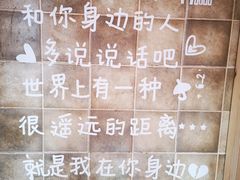 和你身边的人
多说说话吧
世界上有一种
很遥远的距离...
就是我在你身边